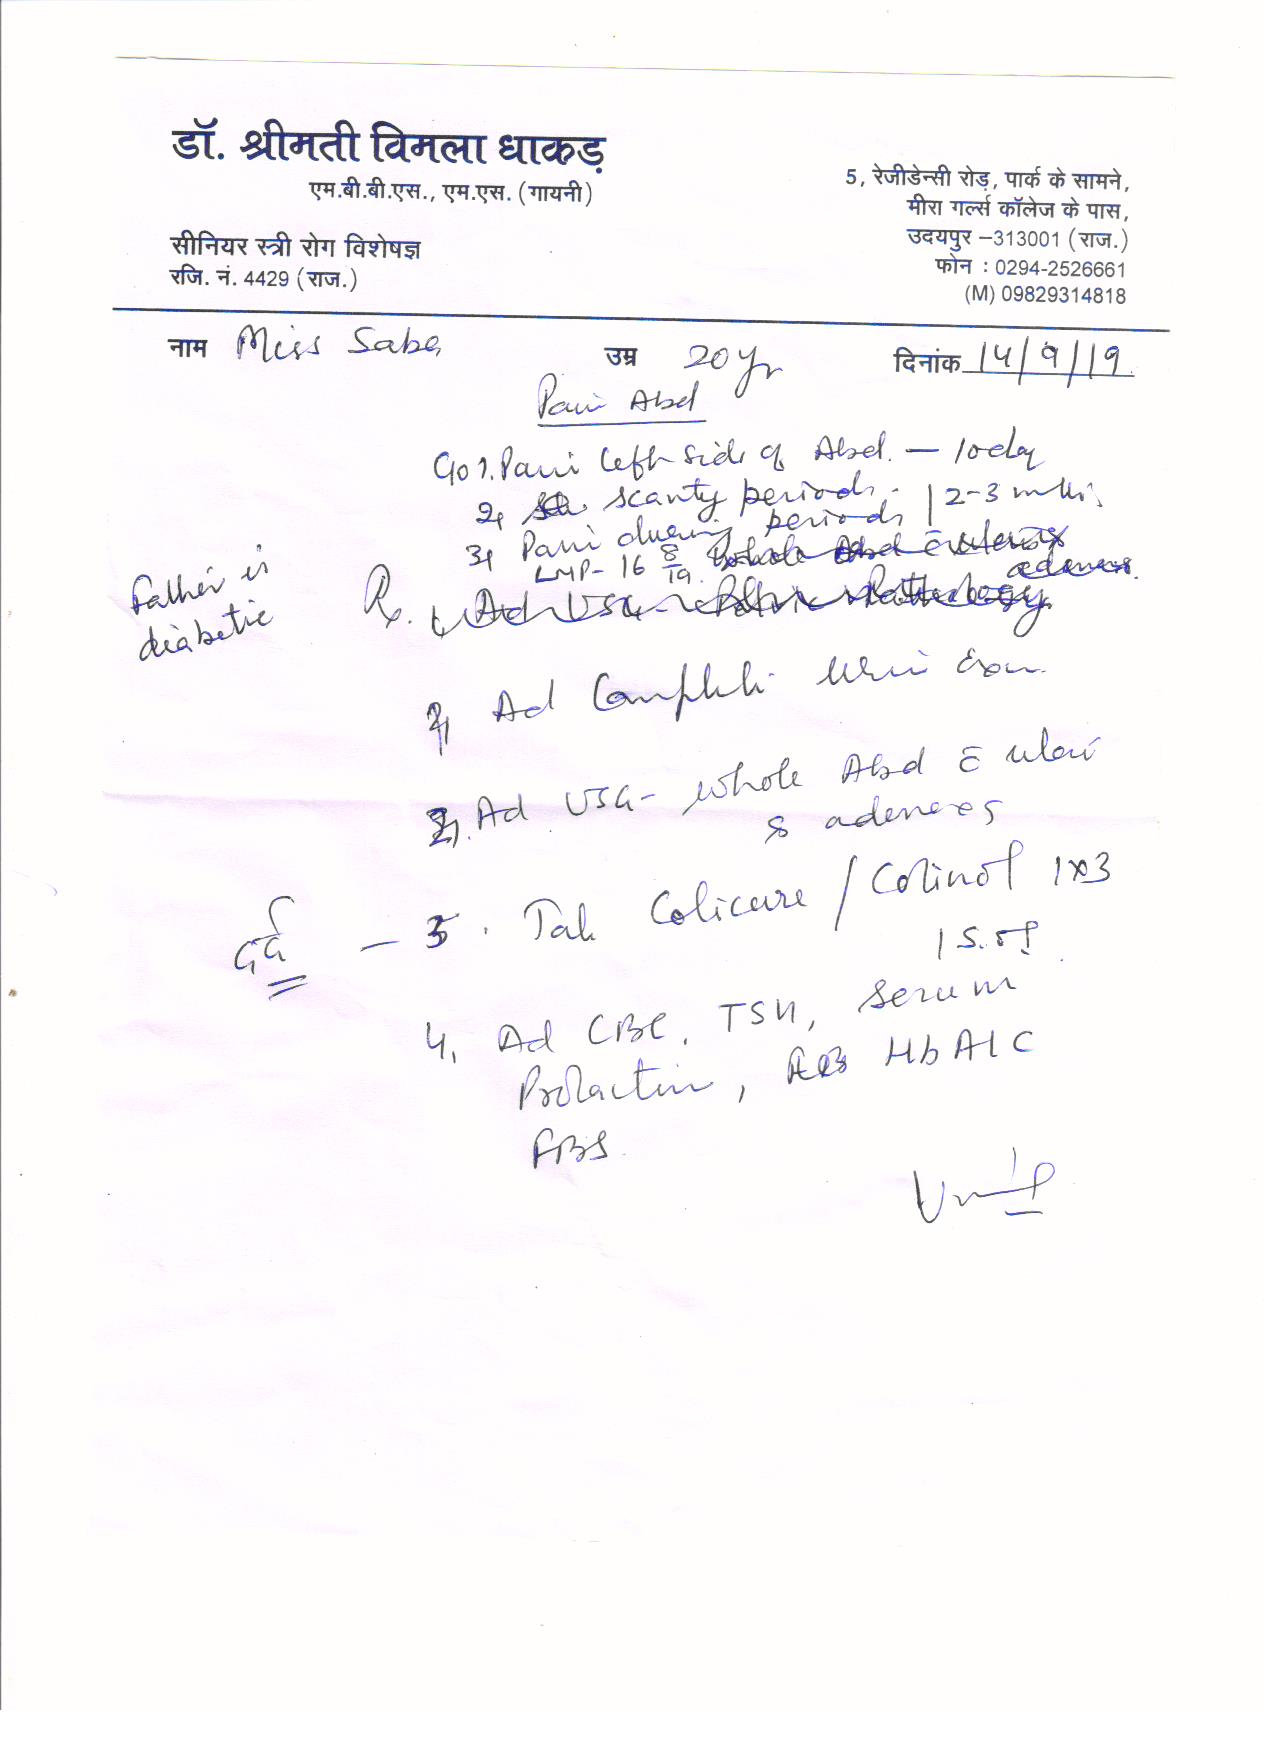 डॉ. श्रीमती विमला धाकड़
एम.बी.बी.एस., एम.एस. (गायनी)
सीनियर स्त्री रोग विशेषज्ञ
रजि. नं. 4429 (राज.)
5, रेजीडेन्सी रोड़, पार्क के सामने,
मीरा गर्ल्स कॉलेज के पास,
उदयपुर –313001 (राज.)
फोन : 0294-2526661
(M) 09829314818
नाम Miss Saba उम्र 20 Yr दिनांक 14/9/19
Pain Abd
1. Pain left side of Abd. — 10 day
2, scanty periods | 2-3 mths
3, Pain during periods
LMP- 16 8/19 whole Abd c̄ uterus
adenexes
Father is
diabetic
Rx. 1, Ad USG - Pelvic Pathology
Ad Complete Urine Exam.
2. Ad USG- whole Abd c̄
& adenexes
दर्द — 3. Tab Colicure / Colinol 1x3
4. Ad CBC, TSH, Serum
Prolactin, HbA1C
FBS